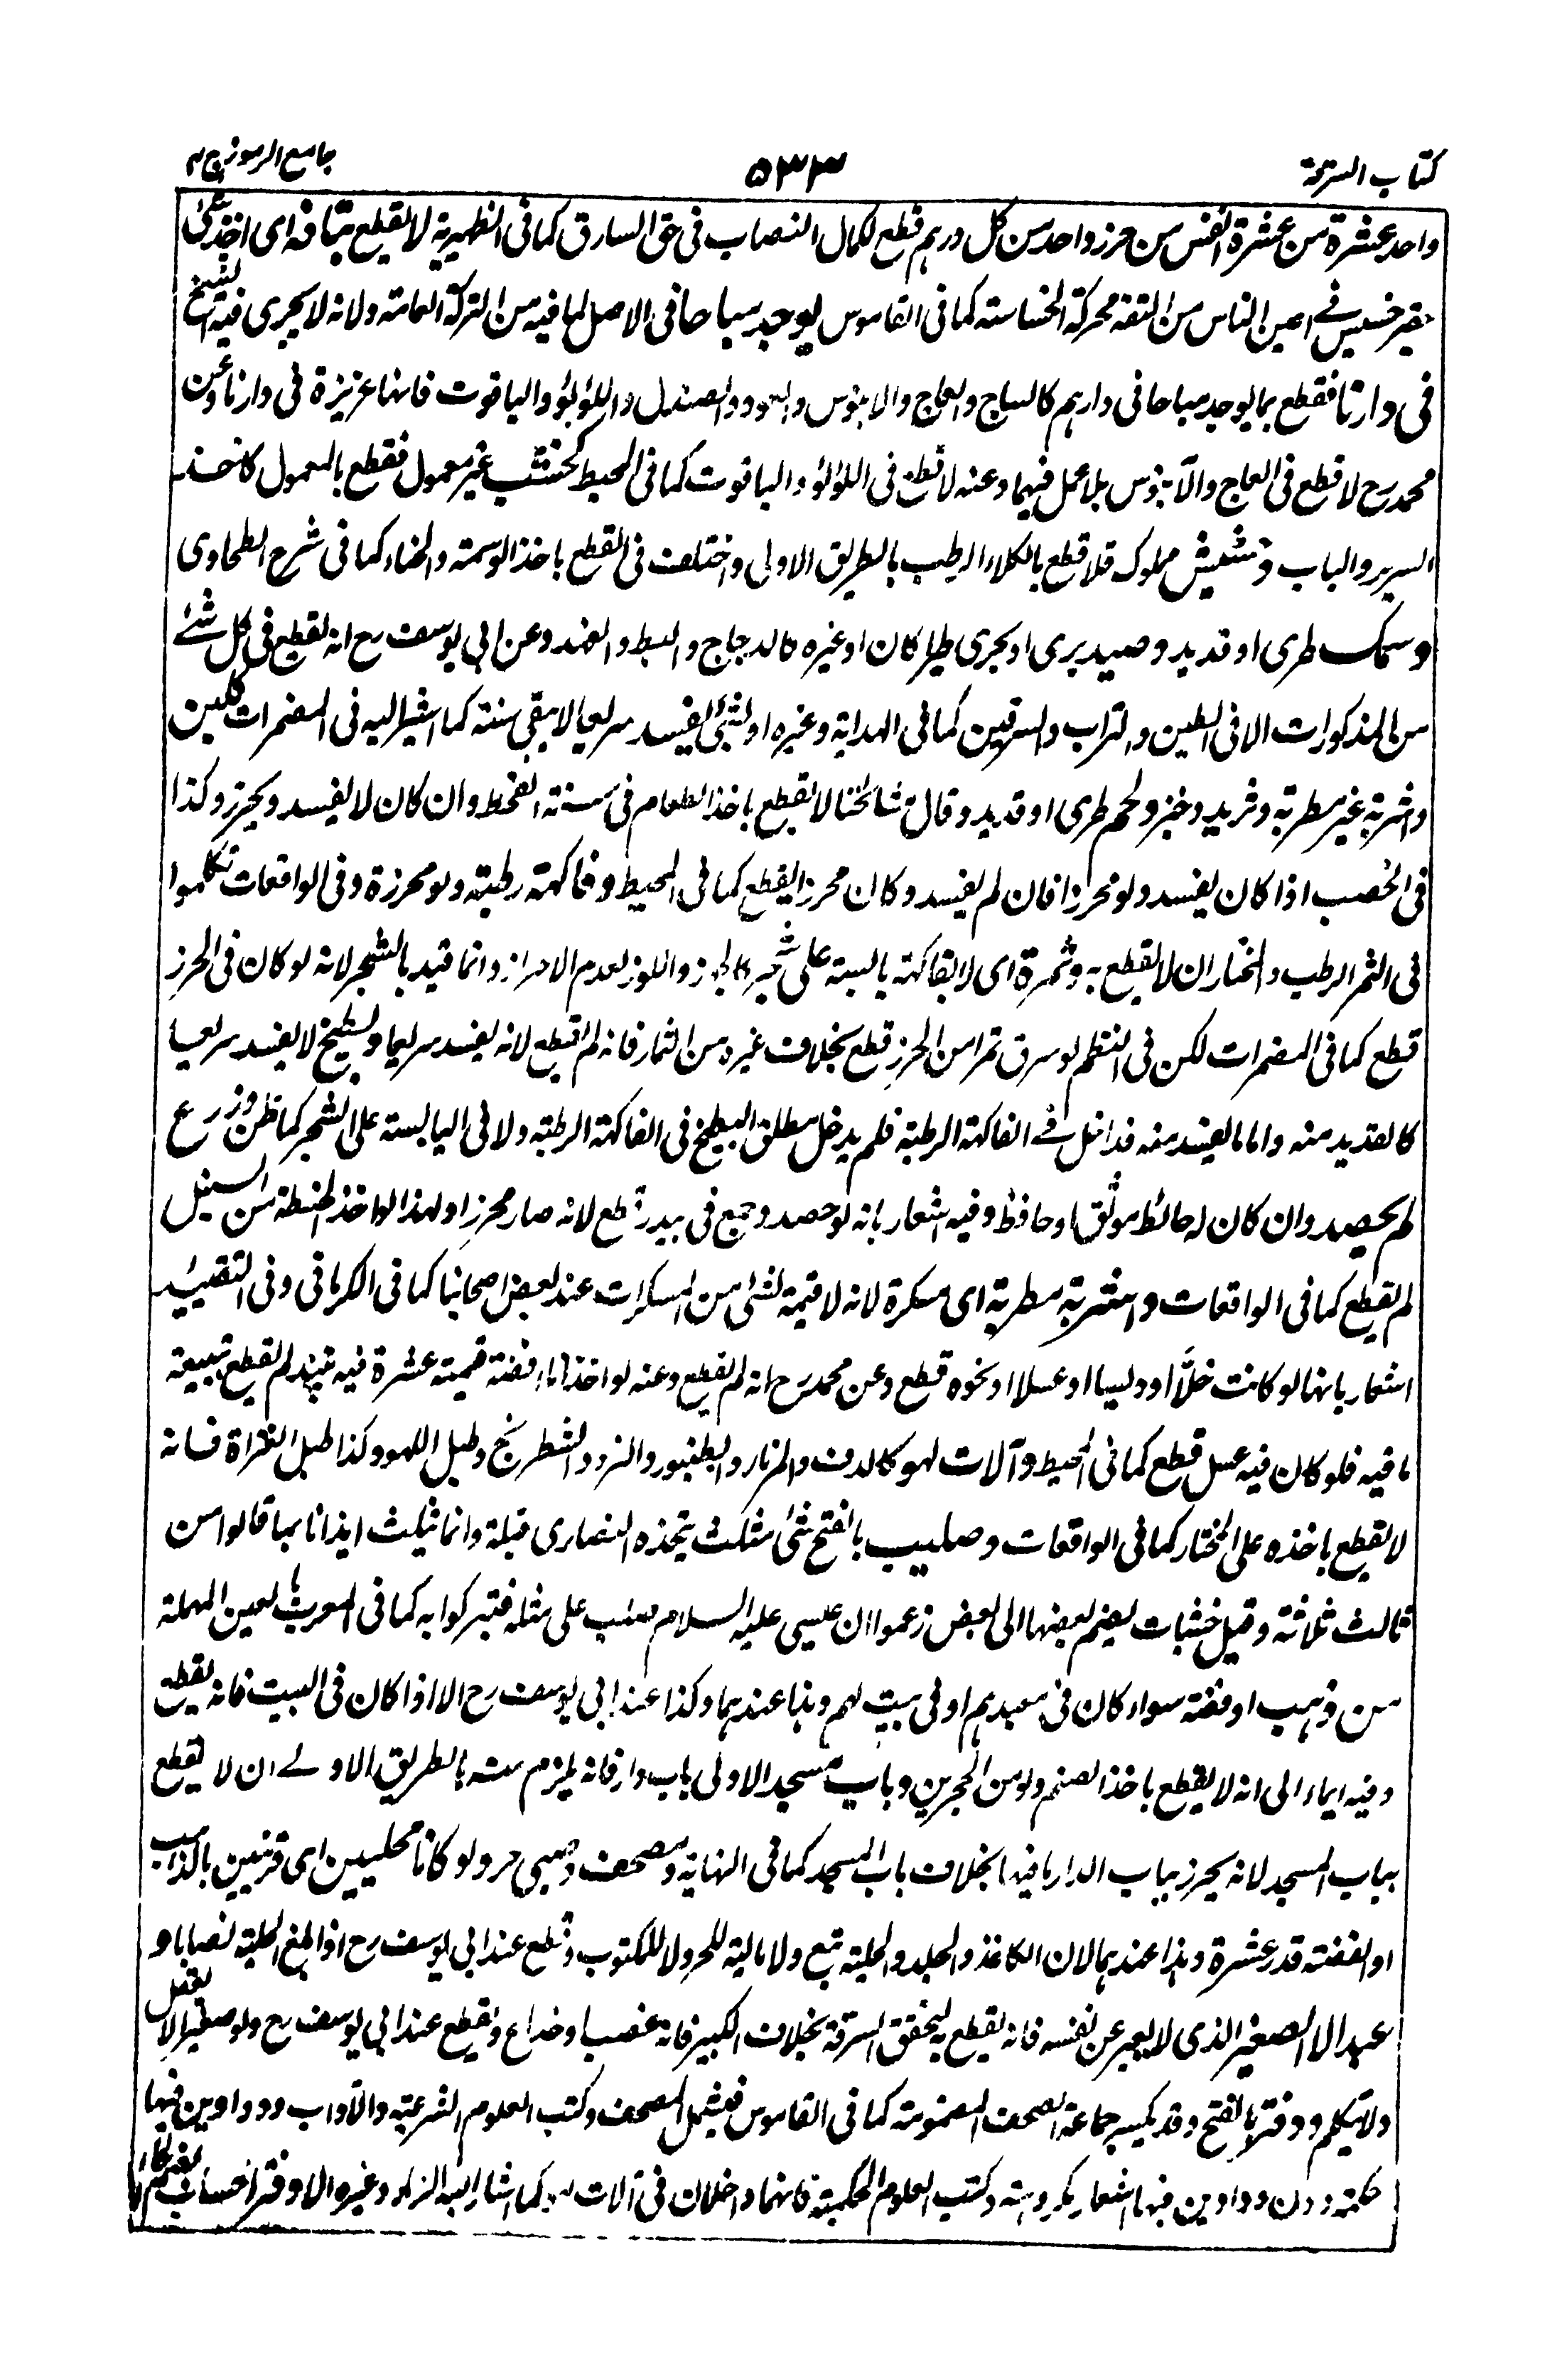 كتاب السرقة
٥٣٣
جامع الرموز ج٢
واحد عشرة من عشرة انفس من حرز واحد من كل درهم قطع لكمال النصاب فى حق السارق كما فى الظهيرية لا يقطع بتافه اى اخذ شئ
حقير خسيس فى اعين الناس من التفه محركة الخساسته كما فى القاموس يوجد مباحا فى الاصل لما فيه من الشركة العامة ولانه لا يجرى فيه الشح
فى دارنا فقطع بما يوجد مباحا فى دارهم كالساج والعاج والابنوس والعود والصندل واللؤلؤ والياقوت فانها عزيزة فى دارنا وعن
محمد رح لا قطع فى العاج والآبنوس بلا عمل فيهما وعنه لا قطع فى اللؤلؤ والياقوت كما فى المحيط كخشب غير معمول فقطع بالمعمول كاخذ
السرير والباب وحشيش مملوك فلا قطع بالكلاء الرطب بالطريق الاولى واختلف فى القطع باخذ الوسمة والحناء كما فى شرح الطحاوى
وسمك طرى او قديد وصيد برى او بحرى طيرا كان او غيره كالدجاج والبط والفهد وعن ابى يوسف رح انه يقطع فى كل شئ
من المذكورات الا فى الطين والتراب والسرقين كما فى الهداية وغيره او لشئ يفسد سريعا لا يبقى سنة كما اشير اليه فى المضمرات كلبن
واشربة غير مطربة وثريد وخبز ولحم طرى او قديد وقال مشائخنا لا يقطع باخذ الطعام فى سنة القحط وان كان لا يفسد ويحرز وكذا
فى الخصب اذا كان يفسد ولو محرزا فان لم يفسد وكان محرزا يقطع كما فى المحيط وفاكهة رطبة ولو محرزة وفى الواقعات تكلموا
فى الثمر الرطب والمختار ان لا يقطع به وثمرة اى لا بفاكهة يابسة على شجر كالجوز واللوز لعدم الاحراز وانما قيد بالشجر لانه لو كان فى الحرز
قطع كما فى المضمرات لكن فى النظم لو سرق تمرا من الحرز قطع بخلاف غيره من الثمار فانه لم يقطع لانه يفسد سريعا والبطيخ لا يفسد سريعا
كالقديد منه واما ما يفسد منه فداخل فى الفاكهة الرطبة فلم يدخل مطلق البطيخ فى الفاكهة الرطبة ولا فى اليابسة على الشجر كما ظن وزرع
لم يحصد وان كان له حائط موثق او حافظ وفيه اشعار بانه لو حصد وجمع فى بيدر قطع لانه صار محرزا ولهذا لو اخذ الحنطة من السنبل
لم يقطع كما فى الواقعات واشربة مطربة اى مسكرة لانه لا قيمة لشئ من المسكرات عند بعض اصحابنا كما فى الكرمانى وفى التقييد
اشعار بانها لو كانت خلّا او دبسا او عسلا او نحوه قطع وعن محمد رح انه لم يقطع وعنه لو اخذ اناء فضة قيمته عشرة فيه نبيذ لم يقطع بتبعية
ما فيه فلو كان فيه عسل قطع كما فى المحيط وآلات لهو كالدف والمزمار والطنبور والنرد والشطرنج وطبل اللهو وكذا طبل الغزاة فانه
لا يقطع باخذه على المختار كما فى الواقعات وصليب بالفتح شئ مثلث يتخذه النصارى قبلة وانما ثلث ايذانا بما قالوا من
ثالث ثلاثة وقيل خشبات يضم بعضها الى بعض زعموا ان عيسى عليه السلام صلب على مثله فتبركوا به كما فى المعرب بالعين المهملة
من ذهب او فضة سواء كان فى معبدهم او فى بيت لهم وهذا عندهما وكذا عند ابى يوسف رح الا اذا كان فى البيت فانه يقطع
وفيه ايماء الى انه لا يقطع باخذ الصنم ولو من الحجرين وباب مسجد الاولى باب دار فانه يلزم منه بالطريق الاولى ان لا يقطع
بباب المسجد لانه يحرز بباب الدار ما فيها بخلاف باب المسجد كما فى النهاية ومصحف وصبى حر ولو كانا محليين اى قرنيين بالذهب
او الفضة قدر عشرة وهذا عندهما لان الكاغذ والجلد والحلية تبع ولا مالية للحر ولا للمكتوب وقطع عند ابى يوسف رح اذا بلغ الحلية نصابا و
عبد الا الصغير الذى لا يعبر عن نفسه فانه يقطع به لتحقق السرقة بخلاف الكبير فانه غصب او خداع ويقطع عند ابى يوسف رح ولو صغيرا لا يعقل
ولا يتكلم ودفتر بالفتح وقد يكسر جماعة الصحف المضمومة كما فى القاموس فيشمل المصحف وكتب العلوم الشرعية والآداب ودواوين فيها
حكمة دون دواوين فيها اشعار مكروهة وكتب العلوم الحكمية فانهما داخلان فى آلات لهو كما اشار اليه الزاد وغيره الا دفتر الحساب